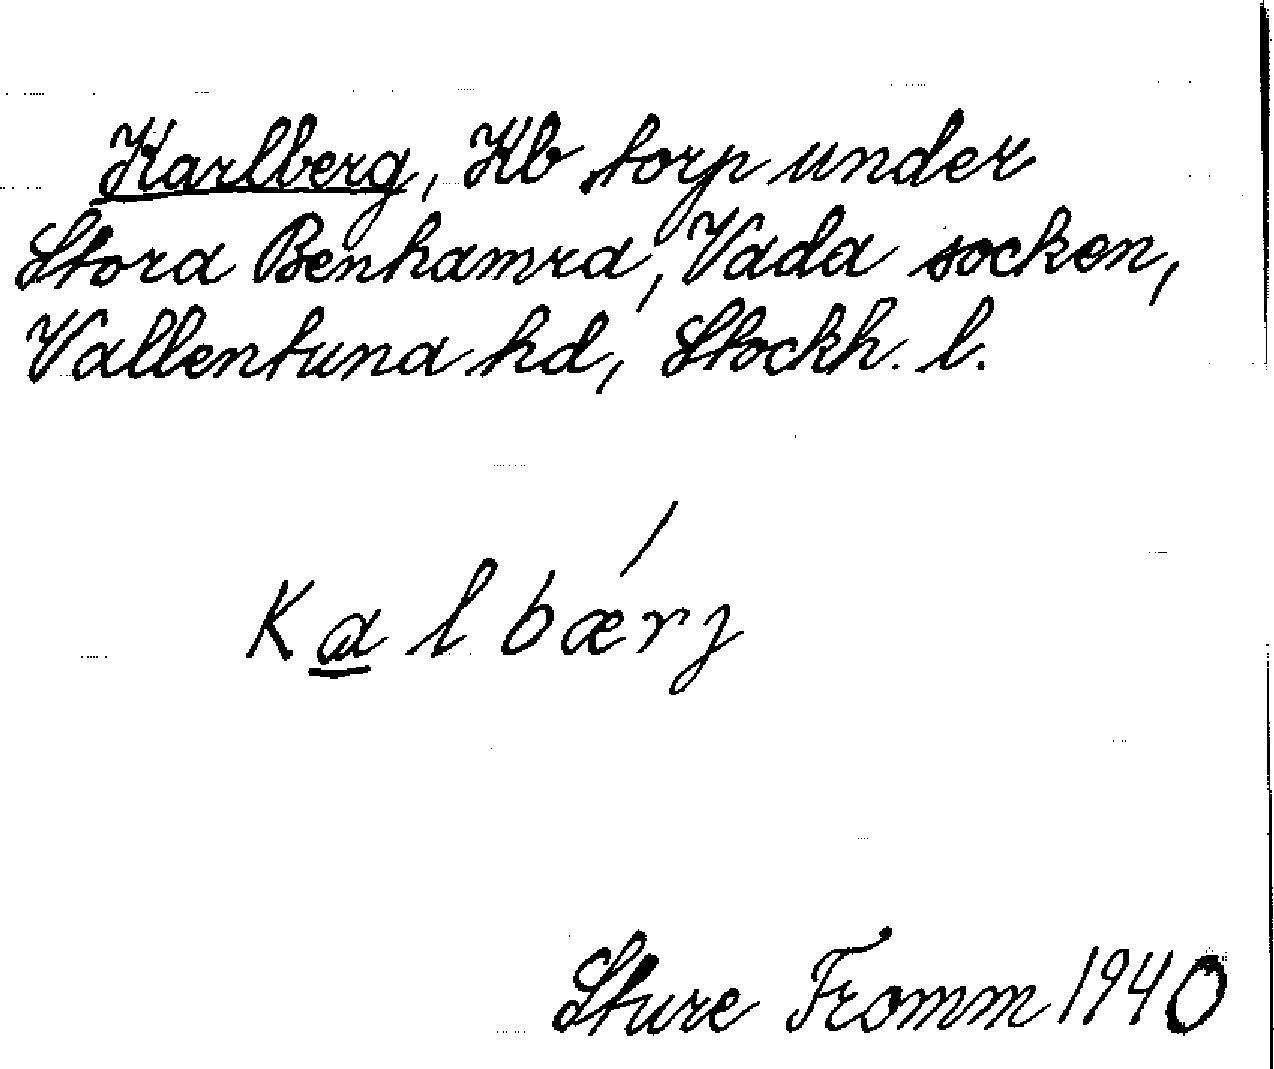 Karlberg, Kb torp under
Stora Benhamra, Vada socken,
Vallentuna hd, Stockh. l.
Kalbærj
Sture Fromm 1940